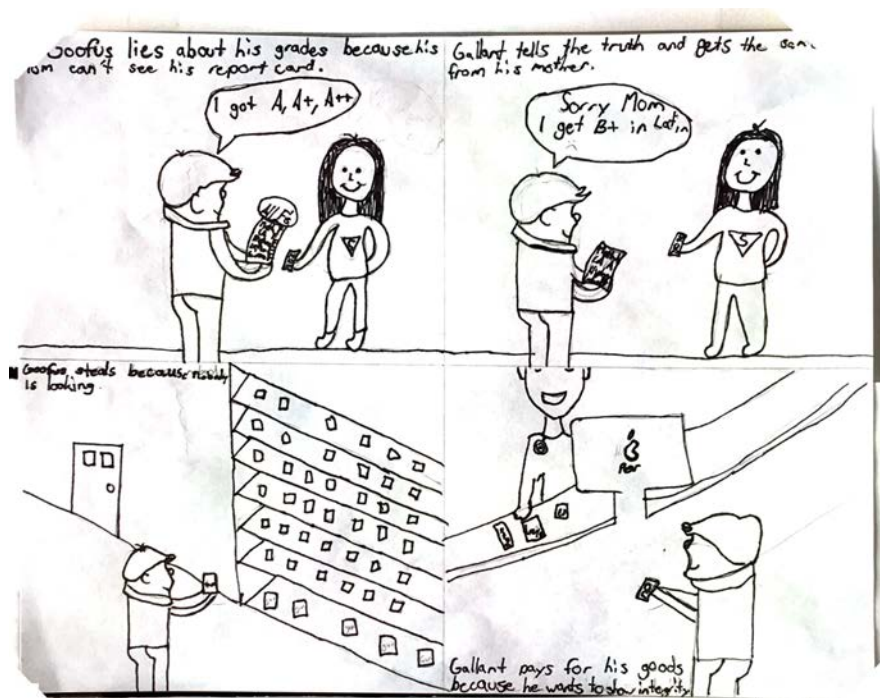 Goofus lies about his grades because his
mom can't see his report card.
I got A, A+, A++
All F's
Gallant tells the truth and gets the same
from his mother.
Sorry Mom
I get B+ in Latin
S
Goofus steals because nobody
is looking.
Gallant pays for his goods
because he wants to show integrity